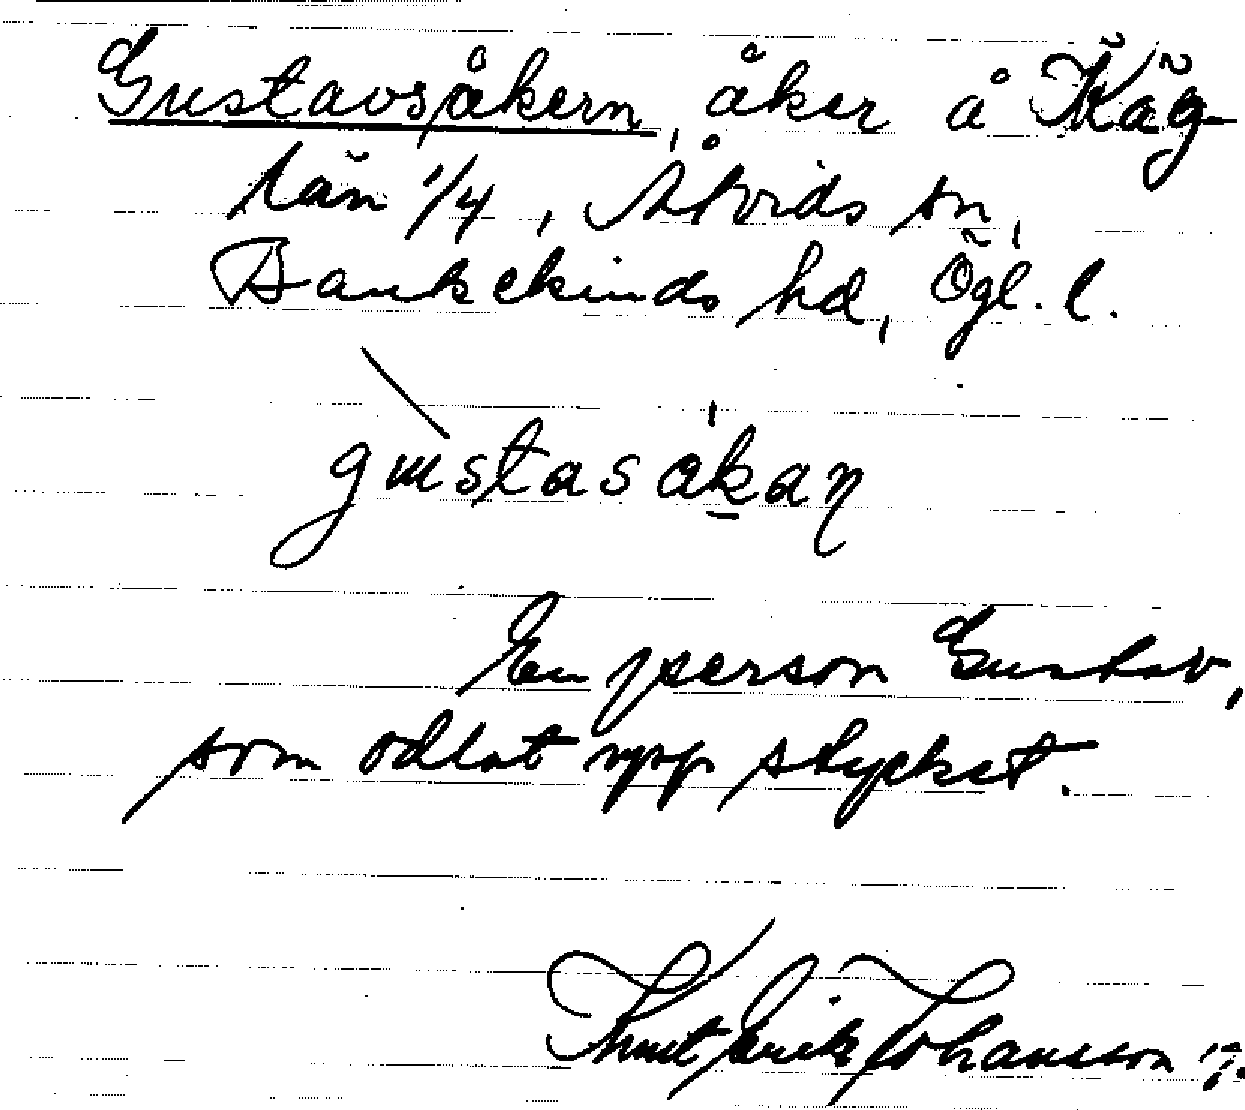 Gustavsåkern, åker å Käg-
län 1/4, Åtvids sn,
Bankekinds hd, Ögl. l.
gustasåkan
En person Gustav,
som odlat upp stycket.
Knut Erik Johansson